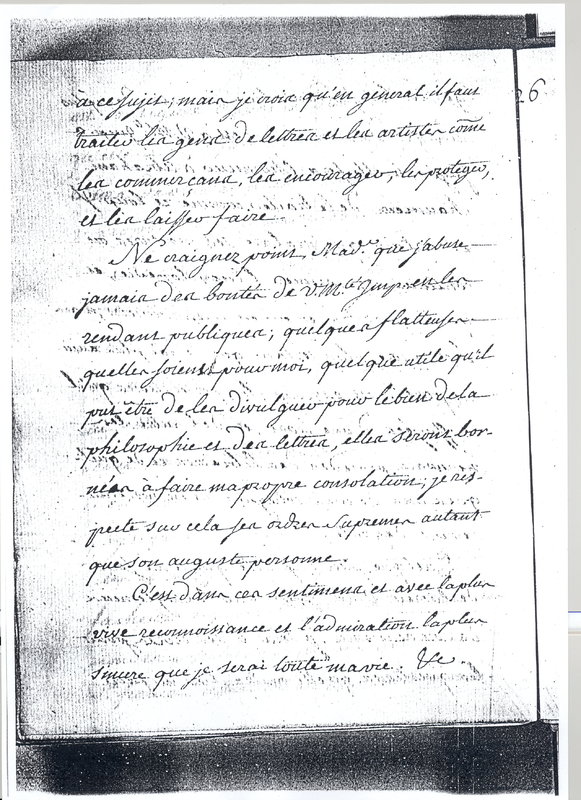 à ce sujet; mais je crois qu'en général il faut
26
traiter les gens de lettres et les artistes come
les commerçans, les encourager, les protéger,
et les laisser faire.
Ne craignez point, Made. que j'abuse
jamais des bontés de V. Mté. Imp. en les
rendant publiques; quelques flatteuses
quelles soient pour moi, quelque utile qu'il
put être de les divulguer pour le bien de la
philosophie et des lettres, elles seront bor-
nées à faire ma propre consolation; je res-
pecte sur cela ses ordres suprêmes autant
que son auguste personne.
C'est dans ces sentimens et avec la plus
vive reconnoissance et l'admiration la plus
sincere que je serai toute ma vie. &c